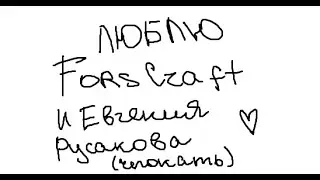 ЛЮБЛЮ
FORSCraft
И Евгения
Русакова
(чпокать)